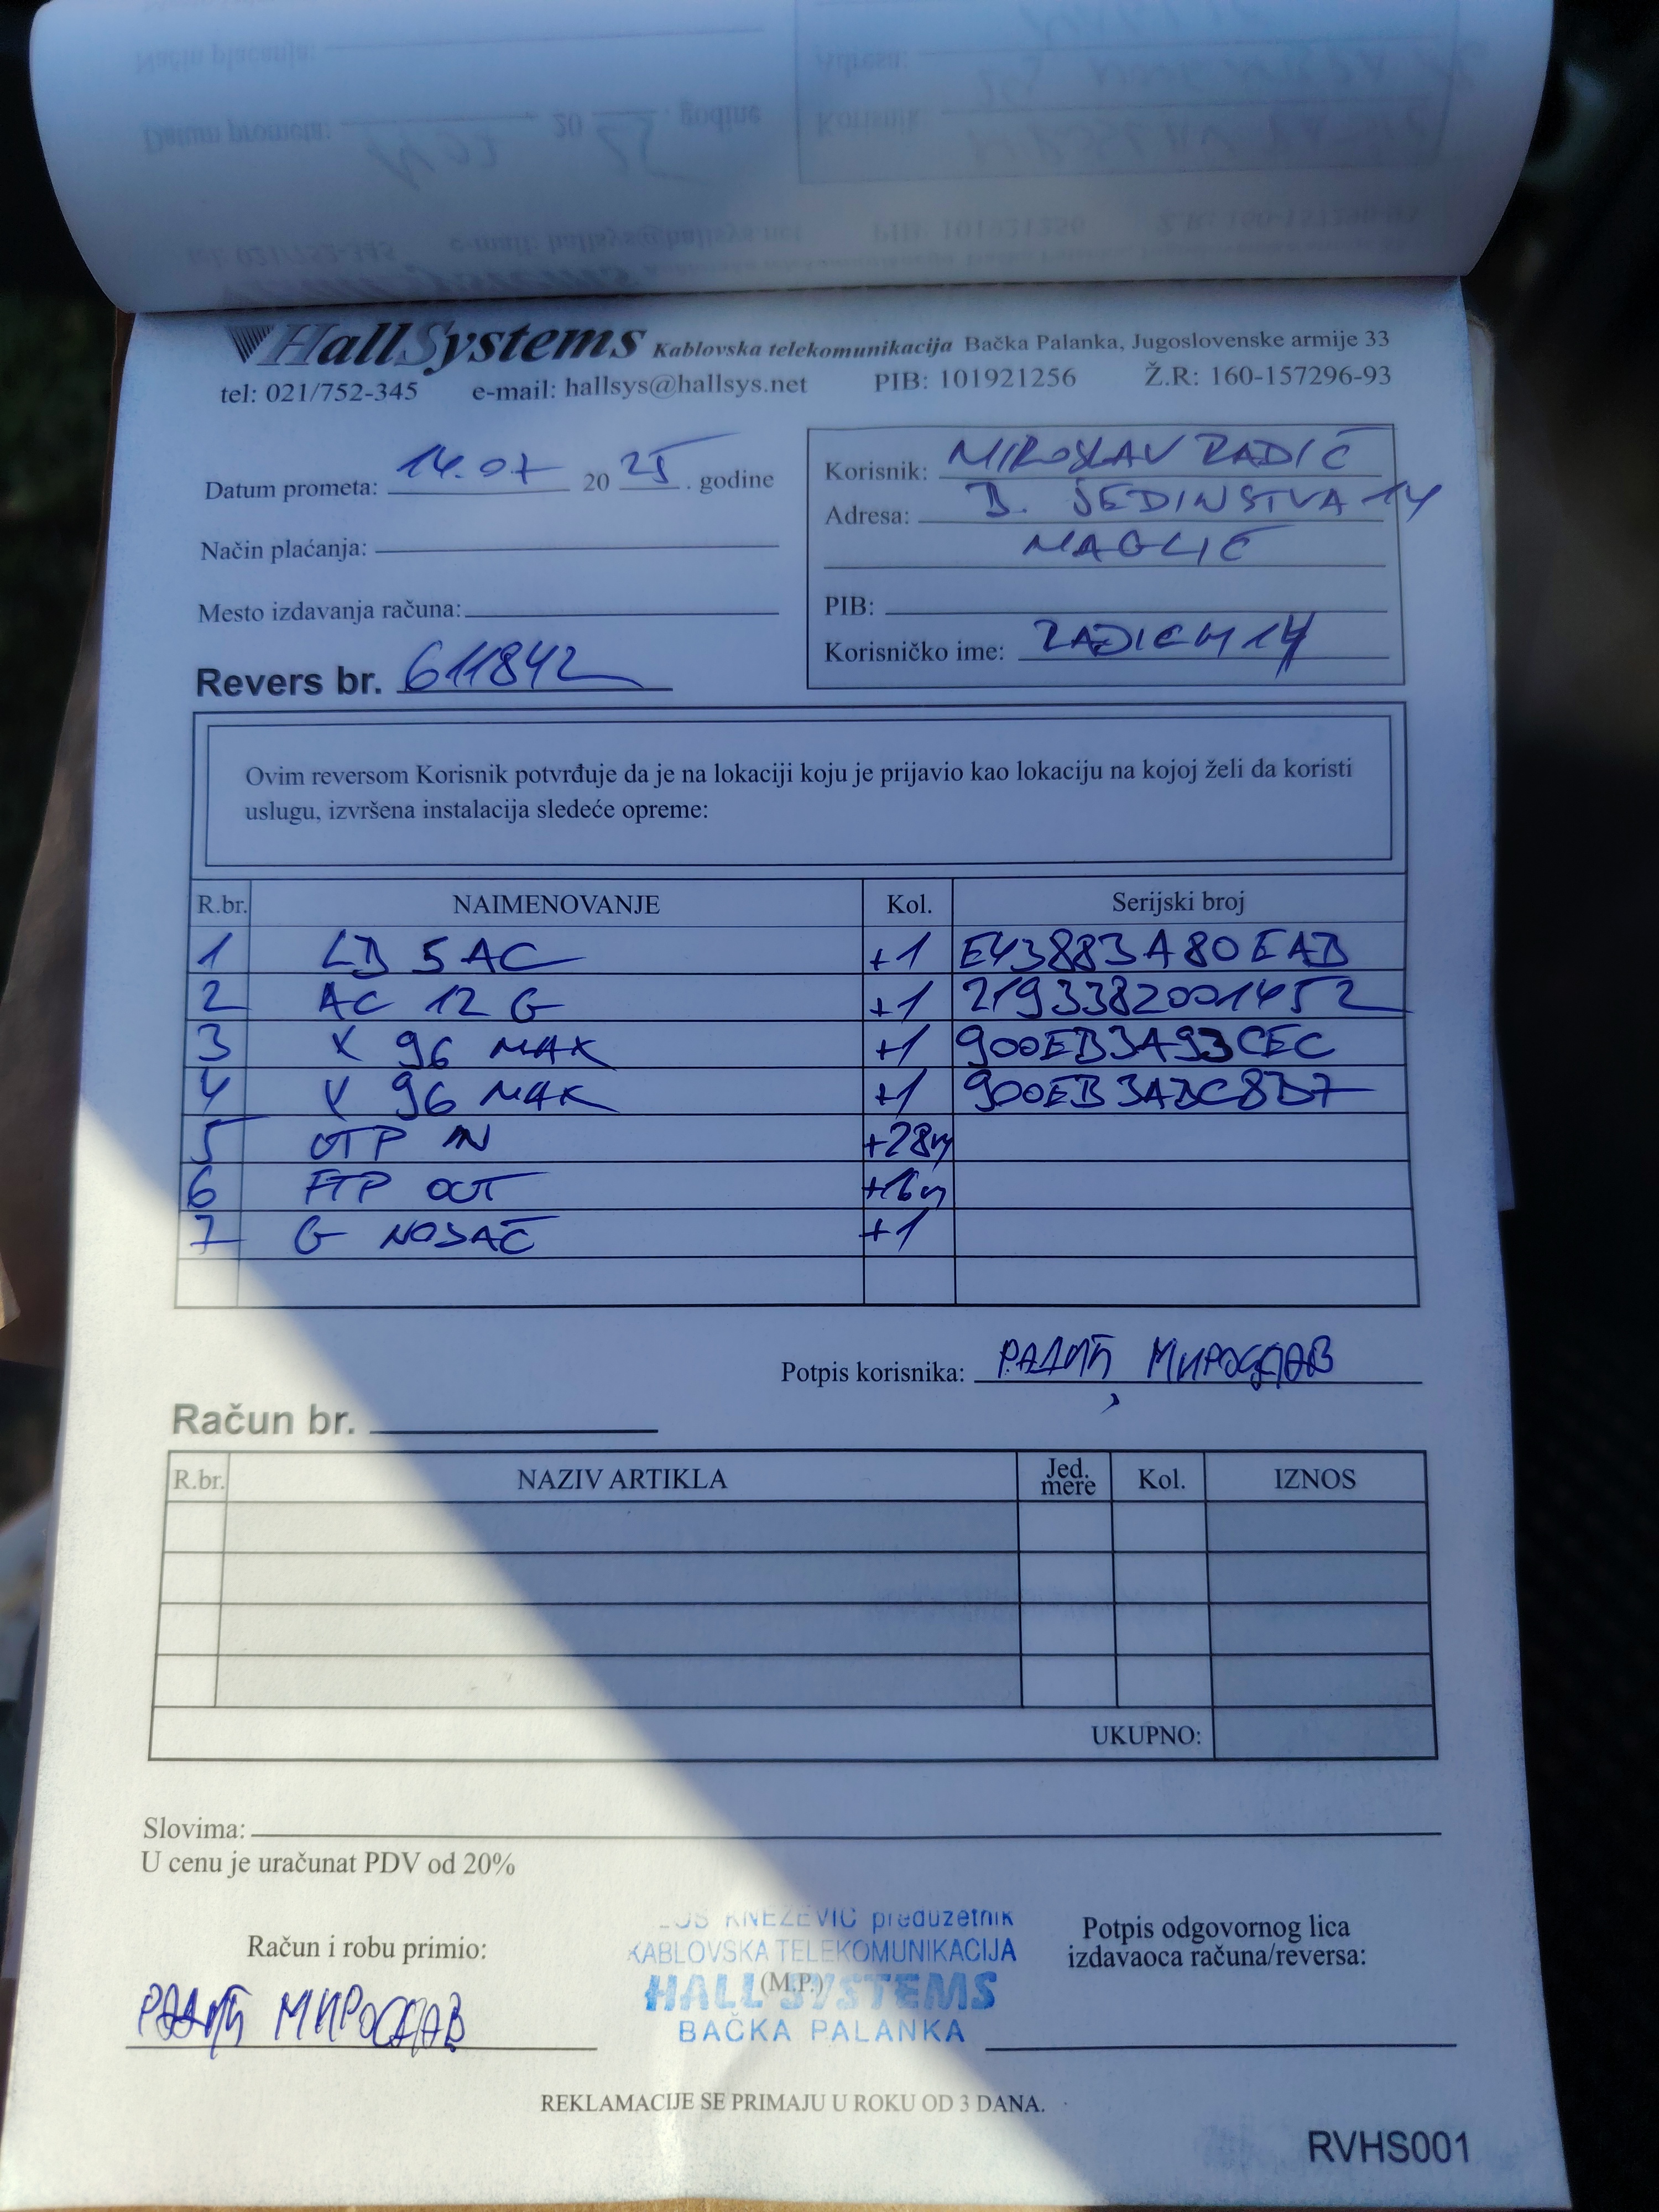 HallSystems Kablovska telekomunikacija Bačka Palanka, Jugoslovenske armije 33
tel: 021/752-345 e-mail: hallsys@hallsys.net PIB: 101921256 Ž.R: 160-157296-93
Datum prometa: 14.07 2025. godine
Način plaćanja:
Mesto izdavanja računa:
Revers br. 611842
Korisnik: MIROSLAV RADIĆ
Adresa: B. JEDINSTVA 14
MAGLIĆ
PIB:
Korisničko ime: RADICM14
Ovim reversom Korisnik potvrđuje da je na lokaciji koju je prijavio kao lokaciju na kojoj želi da koristi
uslugu, izvršena instalacija sledeće opreme:
R.br. NAIMENOVANJE Kol. Serijski broj
1 LB 5 AC +1 E43883A80EAB
2 AC 12 G +1 2193382001452
3 X 96 MAX +1 900EB3A93CEC
4 X 96 MAX +1 900EB3ADC8D7
5 UTP IN +28m
6 FTP OUT +16m
7 G NOSAČ +1
Potpis korisnika: РАДИЋ МИРОСЛАВ
Račun br.
R.br. NAZIV ARTIKLA Jed. mere Kol. IZNOS
UKUPNO:
Slovima:
U cenu je uračunat PDV od 20%
KNEŽEVIĆ preduzetnik
KABLOVSKA TELEKOMUNIKACIJA
(M.P.)
HALL SYSTEMS
BAČKA PALANKA
Račun i robu primio:
РАДИЋ МИРОСЛАВ
Potpis odgovornog lica
izdavaoca računa/reversa:
REKLAMACIJE SE PRIMAJU U ROKU OD 3 DANA.
RVHS001